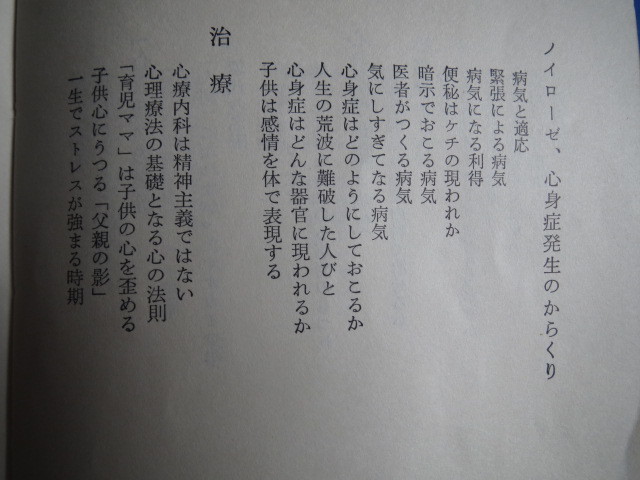 ノイローゼ、心身症発生のからくり
病気と適応
緊張による病気
病気になる利得
便秘はケチの現われか
暗示でおこる病気
医者がつくる病気
気にしすぎてなる病気
心身症はどのようにしておこるか
人生の荒波に難破した人びと
心身症はどんな器官に現われるか
子供は感情を体で表現する
治療
心療内科は精神主義ではない
心理療法の基礎となる心の法則
「育児ママ」は子供の心を歪める
子供心にうつる「父親の影」
一生でストレスが強まる時期